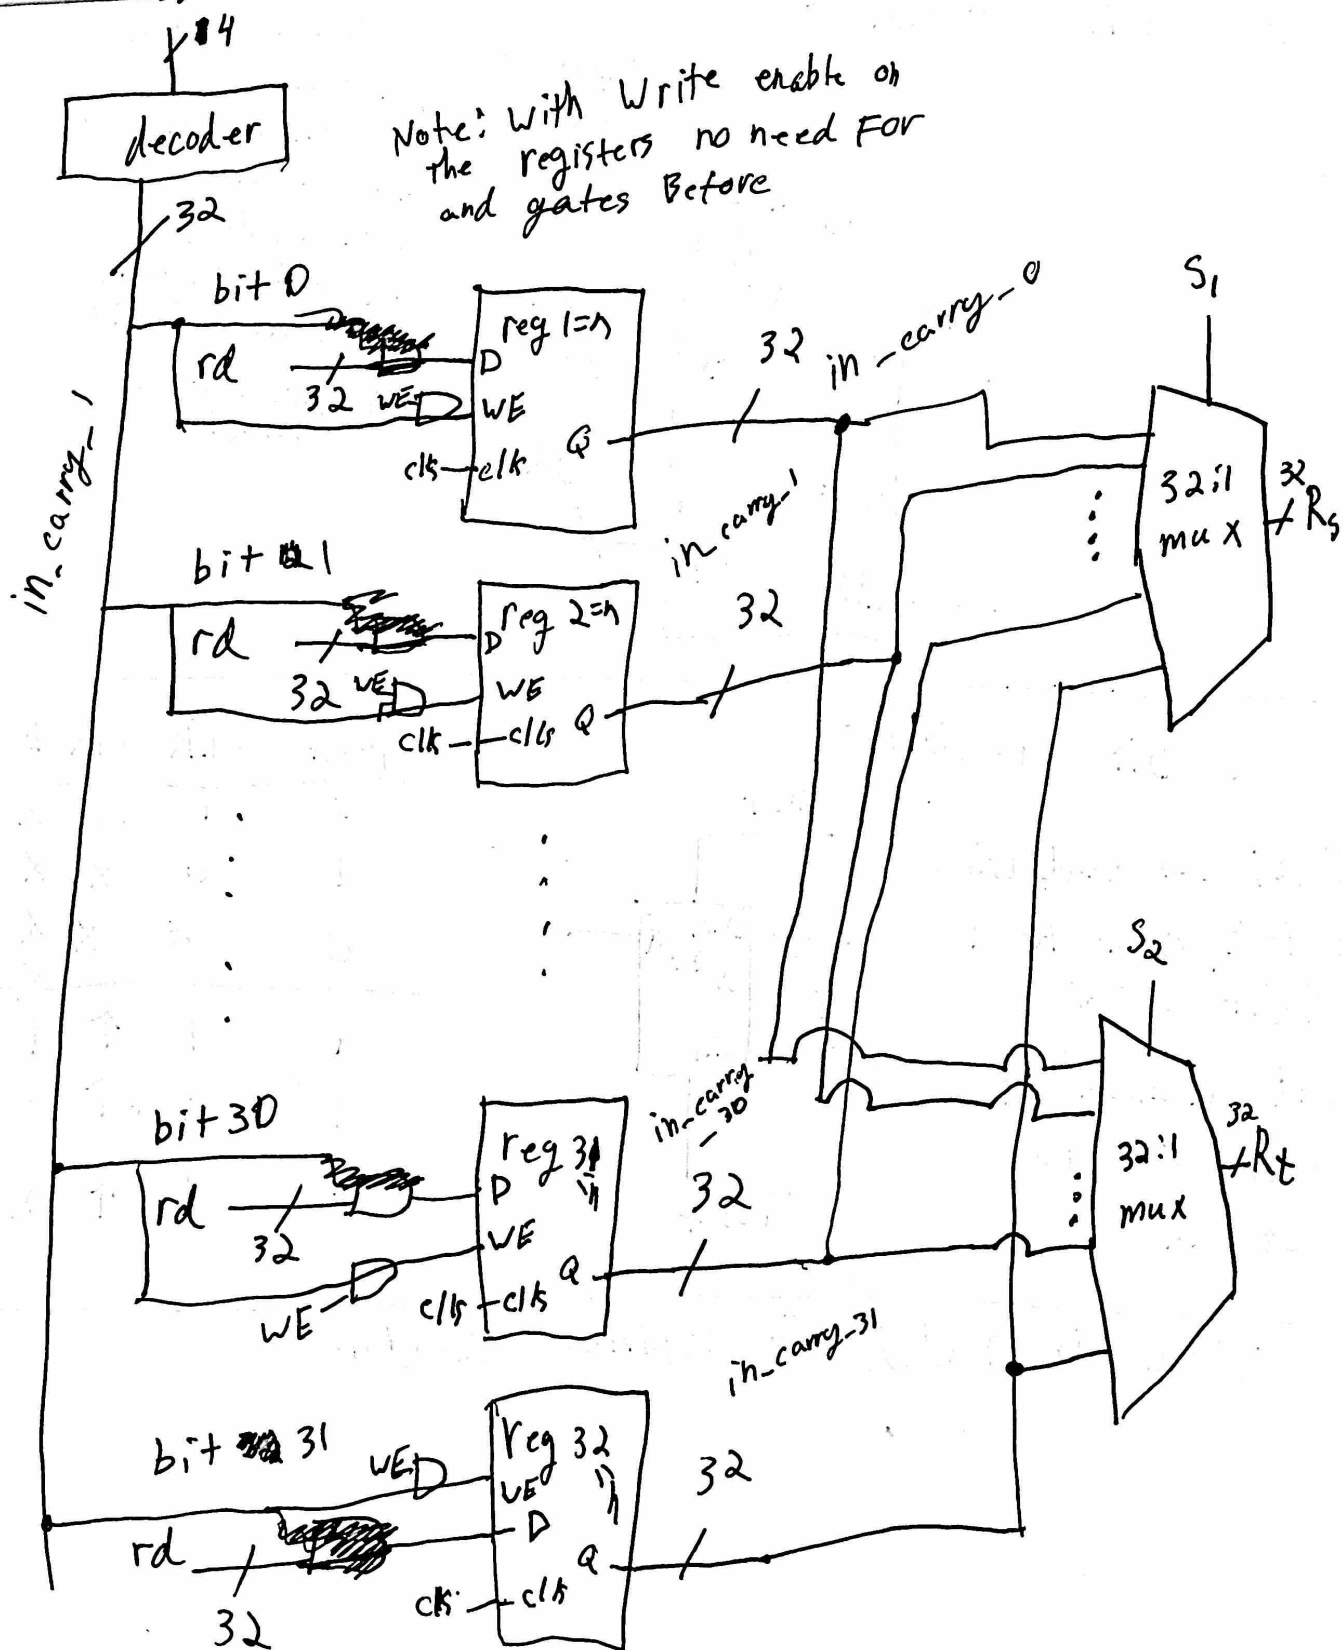 14
decoder
32
Note: With Write enable on
the registers no need For
and gates Before
in_carry_1
bit 0
rd
32
WE
clk
reg 1=n
D
WE
clk
Q
32
in_carry_0
S1
32:1
mux
32
Rs
bit 1
rd
32
WE
clk
reg 2=n
D
WE
clk
Q
in_carry_1
32
bit 30
rd
32
WE
clk
reg 31
D
WE
clk
Q
in_carry
_30
32
S2
32:1
mux
32
Rt
bit 31
WE
rd
32
clk
reg 32
WE
D
clk
Q
in_carry_31
32